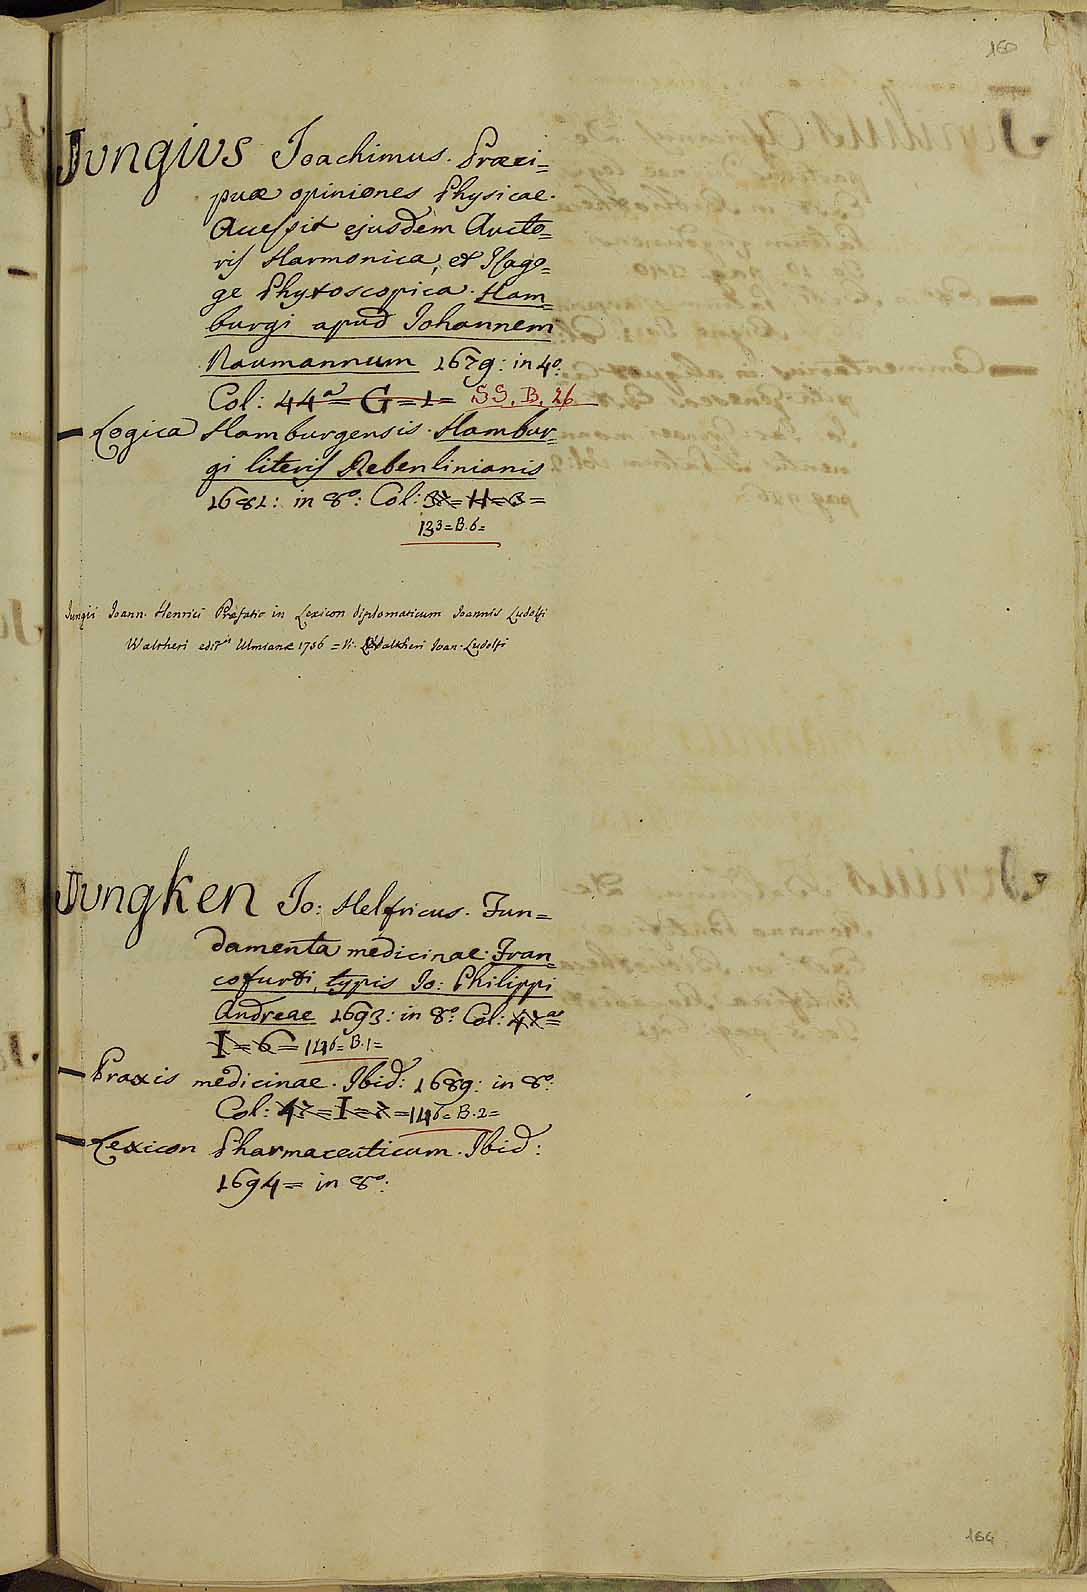 160
Jungius Joachimus. Præci=
puæ opiniones Physicae.
Accessit ejusdem Aucto=
ris Harmonica, et Isago=
ge Phytoscopica. Ham=
burgi apud Johannem
Naumannum 1679: in 4º:
Col: 44ª= G=1= SS. B. 26
Logica Hamburgensis. Hambur=
gi literis Rebenlinianis
1681: in 8º: Col: 37=H=3=
133=B.6=
Jungii Joann. Henrici Præfatio in Lexicon diplomaticum Joannis Ludolfi
Waltheri edit. Ulmianæ 1756 = V. Waltheri Joan. Ludolfi
Jungken Jo: Helfricus. Fun=
damenta medicinae. Fran=
cofurti, typis Jo: Philippi
Andreae 1693: in 8º: Col: 47ª=
I=6= 146=B.1=
Praxis medicinae. Ibid: 1689: in 8º:
Col: 47=I=7=146=B.2=
Lexicon Pharmaceuticum. Ibid:
1694= in 8º:
164